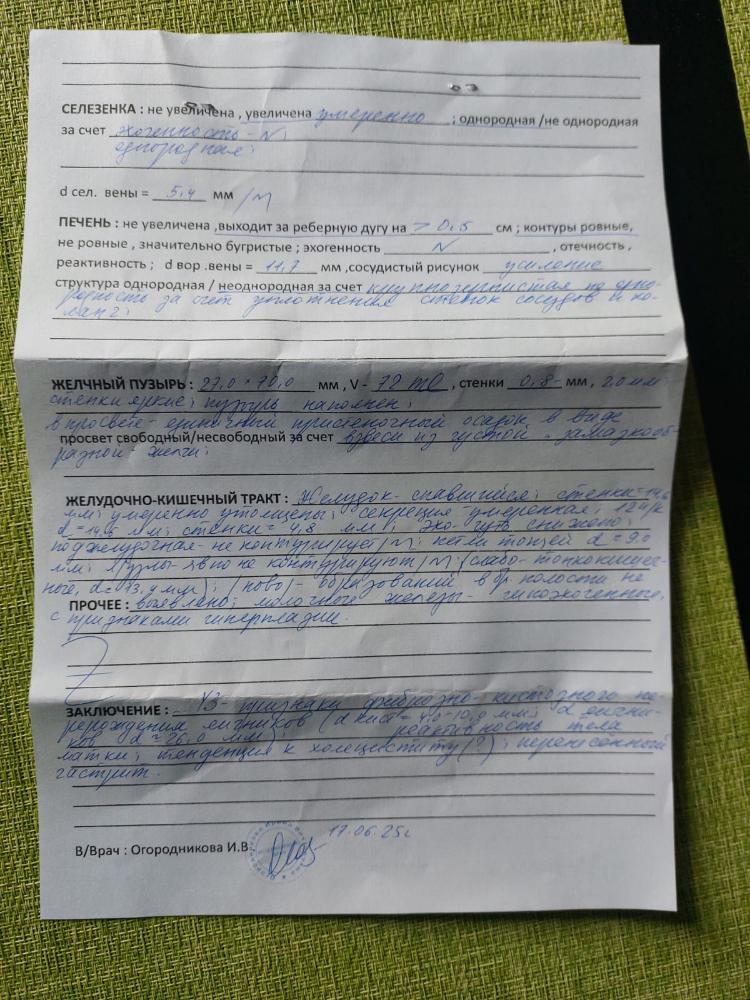 СЕЛЕЗЕНКА : не увеличена , увеличена умеренно ; однородная /не однородная
за счет эхогенность - N;
однородная;
d сел. вены = 5,4 мм /N
ПЕЧЕНЬ : не увеличена ,выходит за реберную дугу на > 0,5 см ; контуры ровные,
не ровные , значительно бугристые ; эхогенность N , отечность ,
реактивность ; d вор .вены = 11,7 мм ,сосудистый рисунок усиление
структура однородная / неоднородная за счет крупнозернистая не одно-
родность за счет уплотнения стенок сосудов и хо-
ланг;
ЖЕЛЧНЫЙ ПУЗЫРЬ : 27,0 × 70,0 мм , V - 72 ml , стенки 0,8- мм , 2,0 мм;
стенки яркие; пузырь наполнен;
в просвете - единичный пристеночный осадок в виде
просвет свободный/несвободный за счет взвеси из густой "замазкооб-
разной" желчи;
ЖЕЛУДОЧНО-КИШЕЧНЫЙ ТРАКТ : Желудок - спавшийся; стенки =
мм; умеренно утолщены; секреция умеренная; 12 п/к
d = 14,5 мм; стенки = 4,8 мм; эхо-ть снижена;
поджелудочная - не контурирует /N; петли тощей d = 9,0
мм; л/узлы - явно не контурируют /N; (слабо - тонкокишеч-
ные, d = 13, мм); (ново) - образований в бр. полости не
ПРОЧЕЕ : выявлено; молочные железы - гипоэхогенные,
с признаками гиперплазии.
ЗАКЛЮЧЕНИЕ : УЗ - признаки фиброзно - кистозного пе-
рерождения яичников (d кист = 4,0-10,0 мм; d яични-
ков d = 26,0 мм); реактивность тела
матки; тенденция к холециститу (?); перенесенный
гастрит.
В/Врач : Огородникова И.В. 17.06.25г